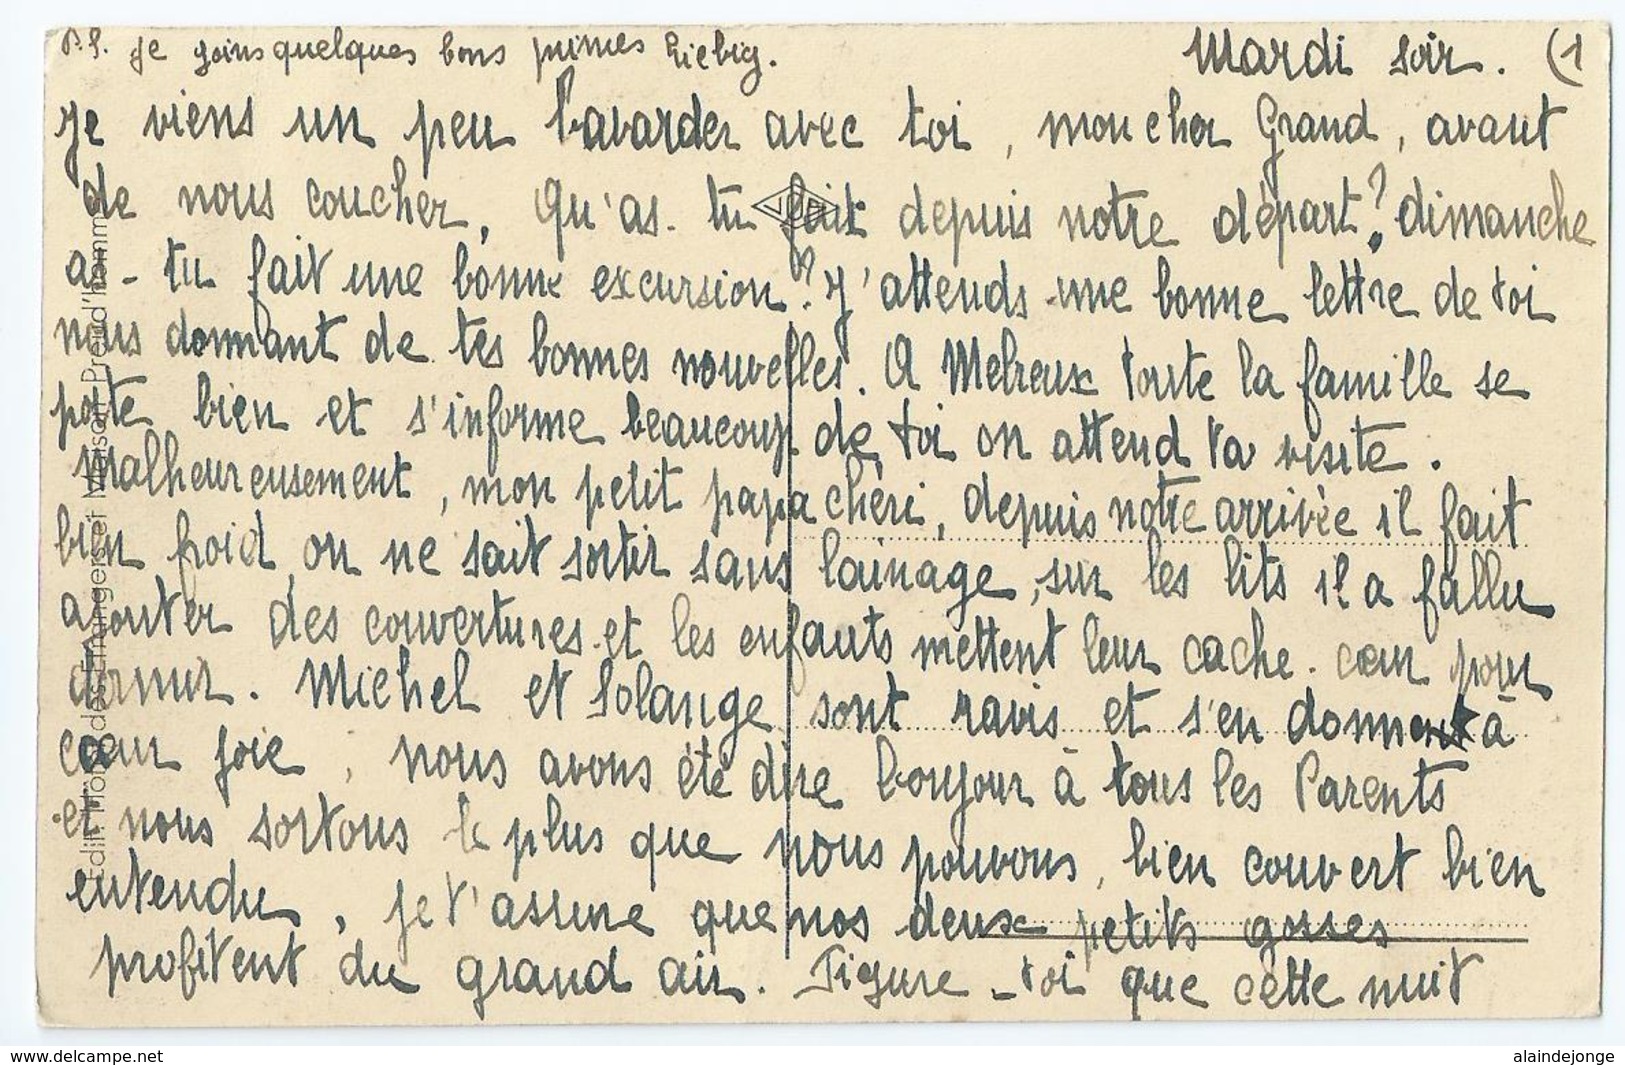 P.S. Je joins quelques bons primes Liebig.
Mardi soir. (1
Je viens un peu bavarder avec toi, mon cher Grand, avant
de nous coucher, Qu'as-tu fait depuis notre départ? dimanche
as-tu fait une bonne excursion? J'attends une bonne lettre de toi
nous donnant de tes bonnes nouvelles. A Melreux toute la famille se
porte bien et s'informe beaucoup de toi on attend ta visite.
Malheureusement, mon petit papa chéri, depuis notre arrivée il fait
bien froid, on ne sait sortir sans lainage, sur les lits il a fallu
ajouter des couvertures et les enfants mettent leur cache-cœur pour
dormir. Michel et Solange sont ravis et s'en donnent à
cœur joie, nous avons été dire bonjour à tous les Parents
et nous sortons le plus que nous pouvons, bien couvert bien
entendu, je t'assure que nos deux petits gosses
profitent du grand air. Figure-toi que cette nuit
Edit. Hôtel des Etrangers et Maison Preud'homme
www.delcampe.net
alaindejonge